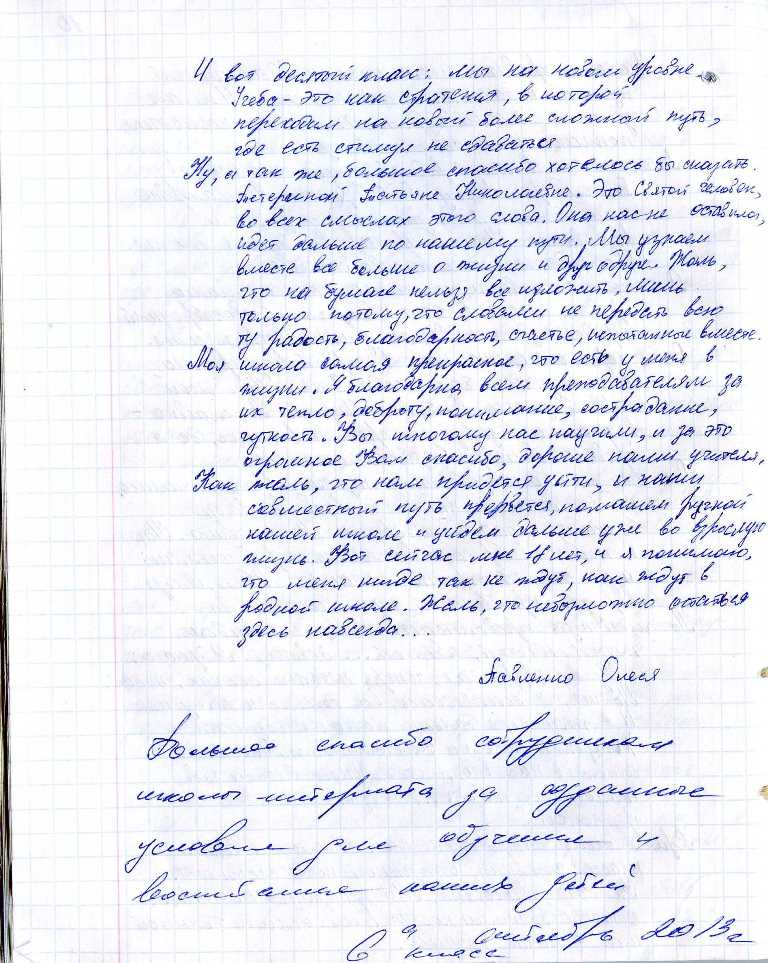 И вот десятый класс: мы на новом уровне.
Учеба - это как стратегия, в которой
переходим на новый более сложной путь,
где есть стимул не сдаваться.
Ну, а так же, большое спасибо хотелось бы сказать
Татьяне Николаевне. Это Святой человек,
во всех смыслах этого слова. Она нас не оставила,
идет дальше по нашему пути. Мы узнаем
вместе все больше о жизни и друг о друге. Жаль,
что на бумаге нельзя все изложить, лишь
только потому, что словами не передать всю
ту радость, благодарность, счастье, испытанное вместе.
Моя школа самая прекрасное, что есть у меня в
жизни. Я благодарна всем преподавателям за
их тепло, доброту, понимание, сострадание,
чуткость. Вы многому нас научили, и за это
огромное Вам спасибо, дорогие наши учителя.
Как жаль, что нам придется уйти, и наш
совместный путь прервется, помашем ручкой
нашей школе и уйдем дальше уже во взрослую
жизнь. Вот сейчас мне 18 лет, и я понимаю,
что меня нигде так не ждут, как ждут в
родной школе. Жаль, что невозможно остаться
здесь навсегда...
Павленко Олеся
Большое спасибо сотрудникам
школы-интерната за созданные
условия для обучения и
воспитания наших детей
6 а класс октябрь 2013г